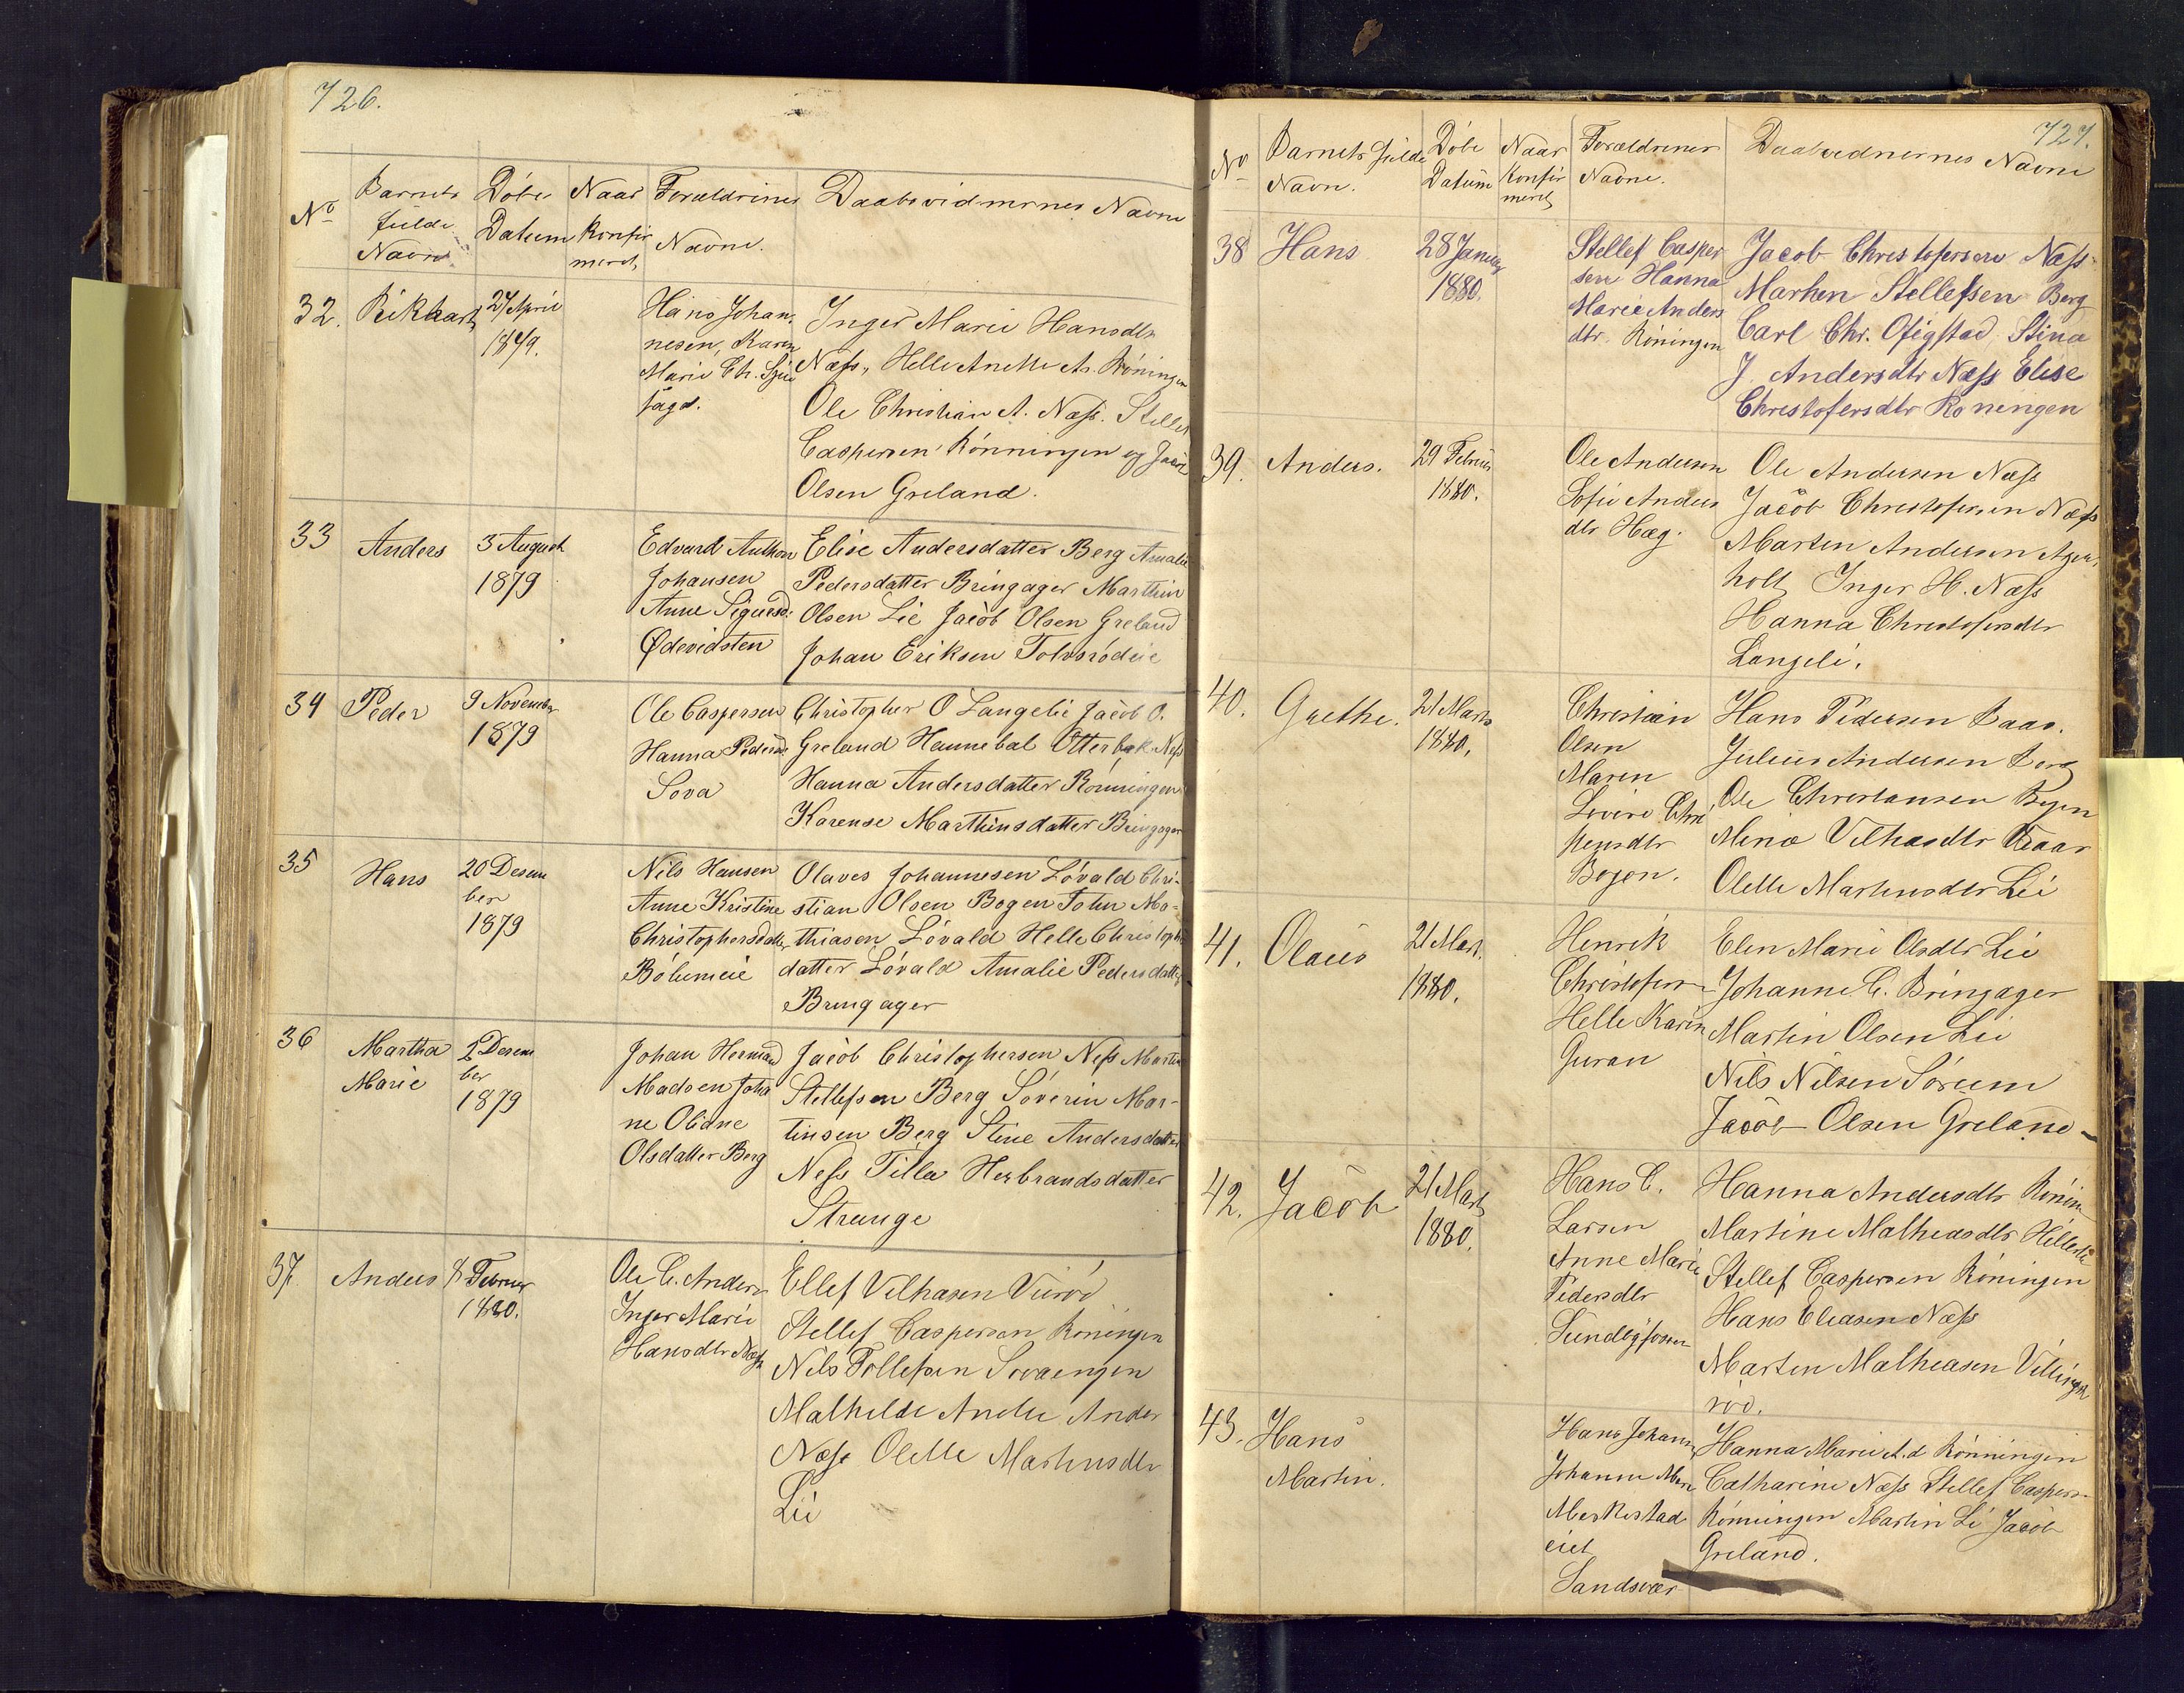 726.
No Barnets fulde Navn Døbe Datum Naar konfirmeret Forældrenes Navne. Daabsvidnernes Navne
32. Rikhart 27 April 1879. Hans Johan-
nesen, Karen
Marie Ch.
Inger Marie Hansdtr
Næss, Helle Anette A. Röningen
Ole Christian A. Næss. Stellef
Caspersen Rönningen og Jacob
Olsen Greland.
33 Anders 3 August 1879
Edvard Anthon
Johansen
Anne Sigursd:
Ødevidsten
Elise Andersdatter Berg Amalie
Pedersdatter Bringager Marthin
Olsen Lie Jacob Olsen Greland
Johan Eriksen
34 Peder 9 November 1879
Ole Caspersen
Hanna Pedersd
Sova
Christopher O Langelie Jacob O.
Greland Hannebal Otterbæk Ness
Hanna Andersdatter Rönningen
Karense Marthinsdatter Bringager
35 Hans 20 Desem
ber
1879
Nils Hansen
Anne Kristine
Christophersdatter
Bölumeie
Olaves Johannesen Lövald Chri-
stian Olsen Bogen John Ma-
thiasen Lövald Helle Christoph
datter Lövald Amalie Pedersdatter
Bringager
36 Martha
Marie
2 Desem
ber
1879
Johan Herman
Madsen Joha
ne Oliane
Olsdatter Berg
Jacob Christophersen Ness Martin
Stellefsen Berg Söverin Mar-
tinsen Berg Stine Andersdatter
Ness Tilla Herbrandsdatter
Strange
37. Anders 8 Februar
1880.
Ole C. Anders
Inger Marie
Hansdtr Næss
Ellef Vilhasen
Stellef Caspersen Röningen
Nils Tollefsen Sovaengen
Mathilde Andre Ander
Næss Olette Martinsdtr
Lii
727.
No Barnets fulde Navn. Döbe Datum Naar konfirmeret Forældrenes Navne. Daabsvidnernes Navne
38 Hans 28 Januar
1880.
Stellef Casper
sen Hanna
Marie Anders
dtr. Röningen
Jacob Christofersen Næss
Marhen Stellefsen Berg
Carl Chr. Ofigstad Stina
J. Andersdtr Næss Elise
Christofersdtr Roningen
39. Anders. 29 Februar
1880.
Ole Andersen
Sofie Anders
dtr Hæg.
Ole Andersen Næss
Jacob Christofersen Næss
Marten Andersen Ager-
holt Inger H. Næss
Hanna Christofersdtr
Langeli.
40. Grethe. 21 Marts
1880.
Christian
Olsen
Maren
Bogen.
Hans Pedersen Baas.
Julius Andersen Borg
Ole Christansen Bogen
Mina Vilhasdtr
Olette Martensdtr Lii
41. Olaus 21 Mart.
1880.
Henrik
Christofers
Helle Karin
Guran
Elen Marie Olsdtr Lie
Johanne C. Bringager
Martin Olsen Lii
Nils Nilsen Sörum
Jacob Olsen Greland
42. Jacob 21 Marts
1880.
Hans C.
Larsen
Anne Marie
Pedersdtr
Hanna Andersdtr Rönin
Martine Matheasdtr
Stellef Caspersen Röningen
Hans Eliasen Næss
Marten Matheasen
röd.
43. Hans
Martin.
Hans Johann
Johanne
eiet
Sandsvær
Hanna Marie A.d Rönningen
Catharine Næss Stellef Caspers
Rönningen Martin Li Jacob
Greland.